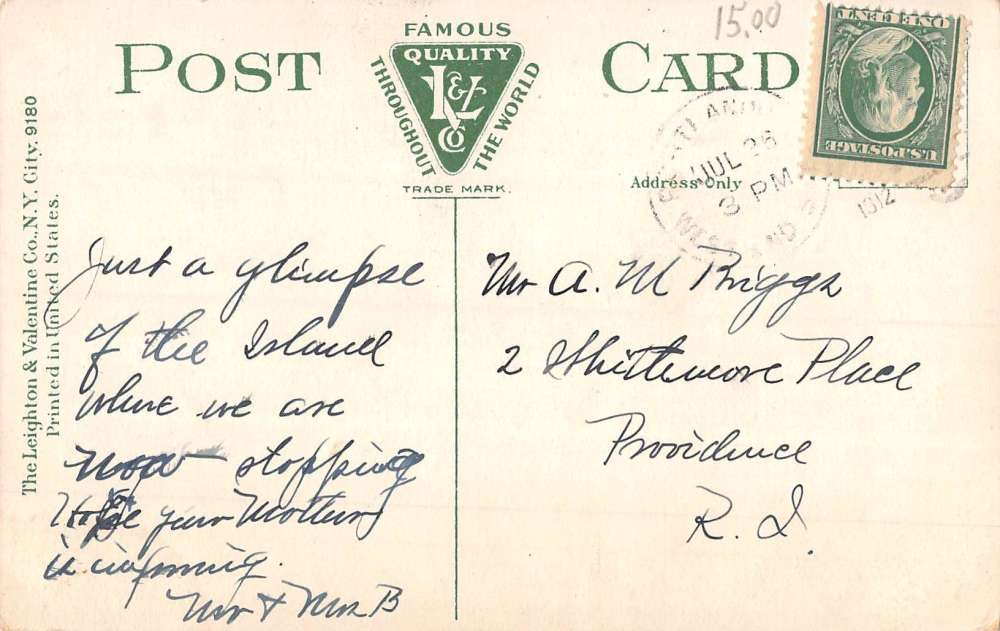 15.00
POST CARD
FAMOUS
QUALITY
THROUGHOUT
THE WORLD
L&V
Co
TRADE MARK.
ONE CENT
U.S. POSTAGE
JUL 26
3 PM
1912
Address Only
The Leighton & Valentine Co., N.Y. City. 9180
Printed in United States.
Just a glimpse
of the Island
where we are
now stopping
Hope your Mother
is improving.
Mr & Mrs B
Mr A. M Briggs
2 Whittemore Place
Providence
R. I.